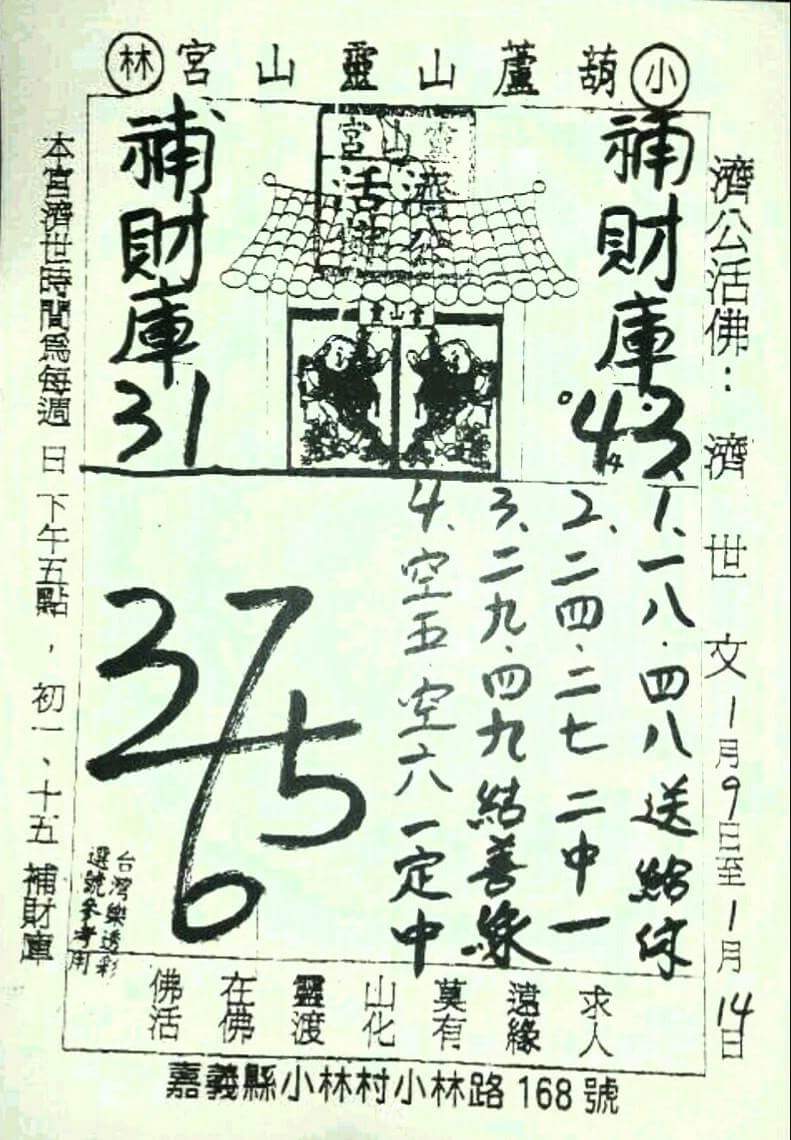 小 葫蘆山靈山宮 林
濟公活佛：濟世文1月9日至1月14日
補財庫
43
靈山宮
濟公活佛
靈山宮
補財庫
31
1、一八·四八送給你
2、二四·二七二中一
3、二九·四九結善緣
4、空五·空六一定中
3 7 5 6
台灣樂透彩
選號參考用
求人
遠緣
莫有
山化
靈渡
在佛
佛活
本宮濟世時間為每週日下午五點，初一、十五補財庫
嘉義縣小林村小林路168號